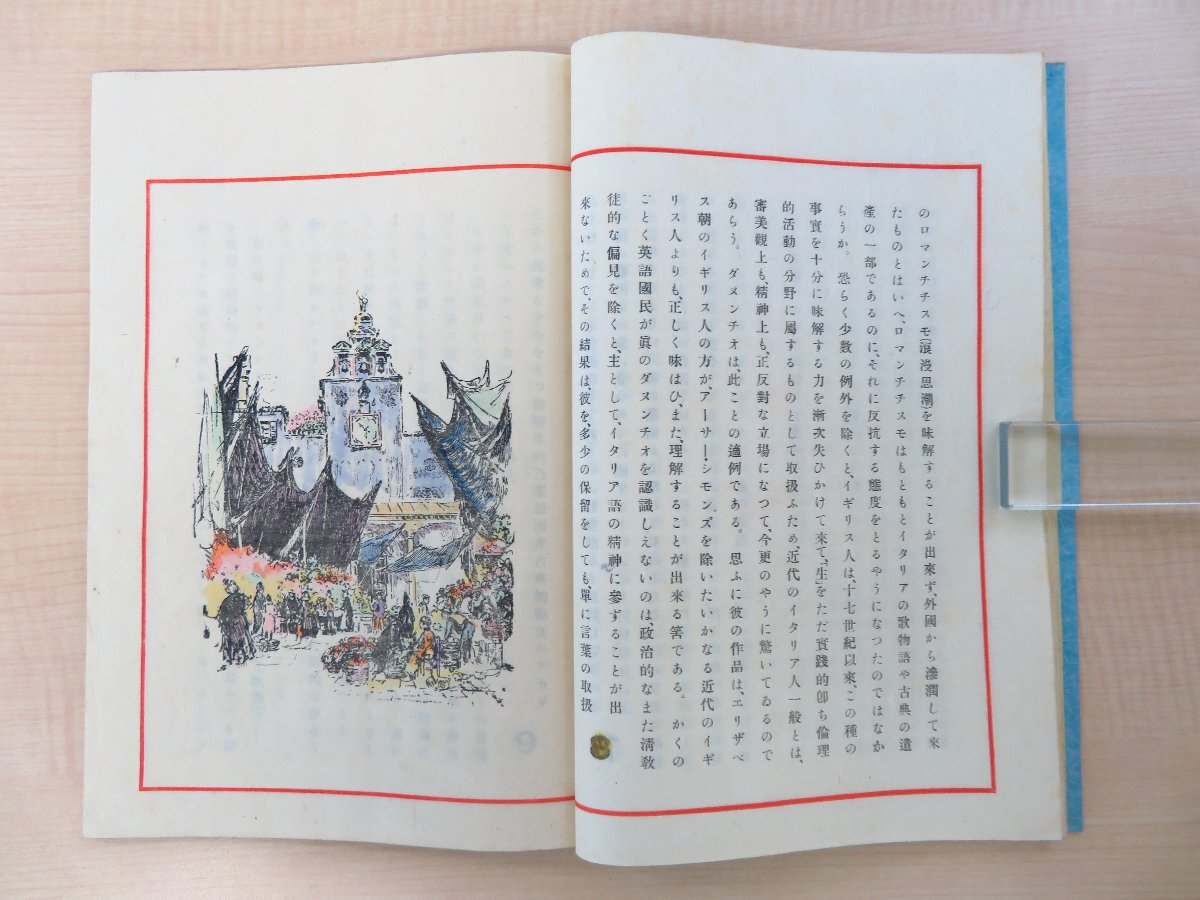 のロマンチチスモ(浪漫思潮)を味解することが出來ず、外國から滲潤して來
たものとはいへ、ロマンチチスモはもともとイタリアの歌物語や古典の遺
產の一部であるのに、それに反抗する態度をとるやうになつたのではなか
らうか。恐らく少數の例外を除くと、イギリス人は、十七世紀以來、この種の
事實を十分に味解する力を漸次失ひかけて來て、「生」をただ實踐的卽ち倫理
的活動の分野に屬するものとして取扱ふため、近代のイタリア人一般とは、
審美觀上も、精神上も、正反對な立場になつて、今更のやうに驚いてゐるので
あらう。ダヌンチオは、此ことの適例である。思ふに彼の作品は、エリザベ
ス朝のイギリス人の方が、アーサー・シモンズを除いたいかなる近代のイギ
リス人よりも、正しく味はひ、また、理解することが出來る筈である。かくの
ごとく英語國民が眞のダヌンチオを認識しえないのは、政治的なまた淸敎
徒的な偏見を除くと、主として、イタリア語の精神に參ずることが出
來ないためで、その結果は、彼を、多少の保留をしても、單に言葉の取扱